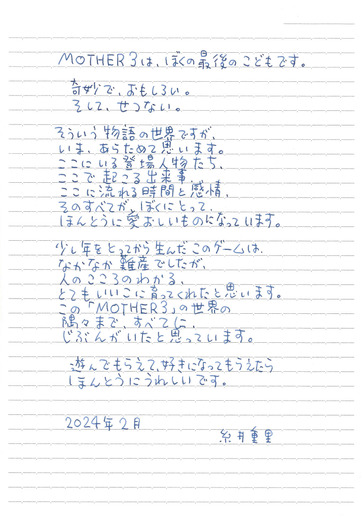 MOTHER3は、ぼくの最後のこどもです。
奇妙で、おもしろい。
そして、せつない。
そういう物語の世界ですが、
いま、あらためて思います。
ここにいる登場人物たち、
ここで起こる出来事、
ここに流れる時間と感情、
そのすべてが、ぼくにとって、
ほんとうに愛おしいものになっています。
少し年をとってから生んだこのゲームは、
なかなか難産でしたが、
人のこころのわかる、
とてもいいこに育ってくれたと思います。
この「MOTHER3」の世界の
隅々まで、すべてに、
じぶんがいたと思っています。
遊んでもらえて、好きになってもらえたら
ほんとうにうれしいです。
2024年2月
糸井重里